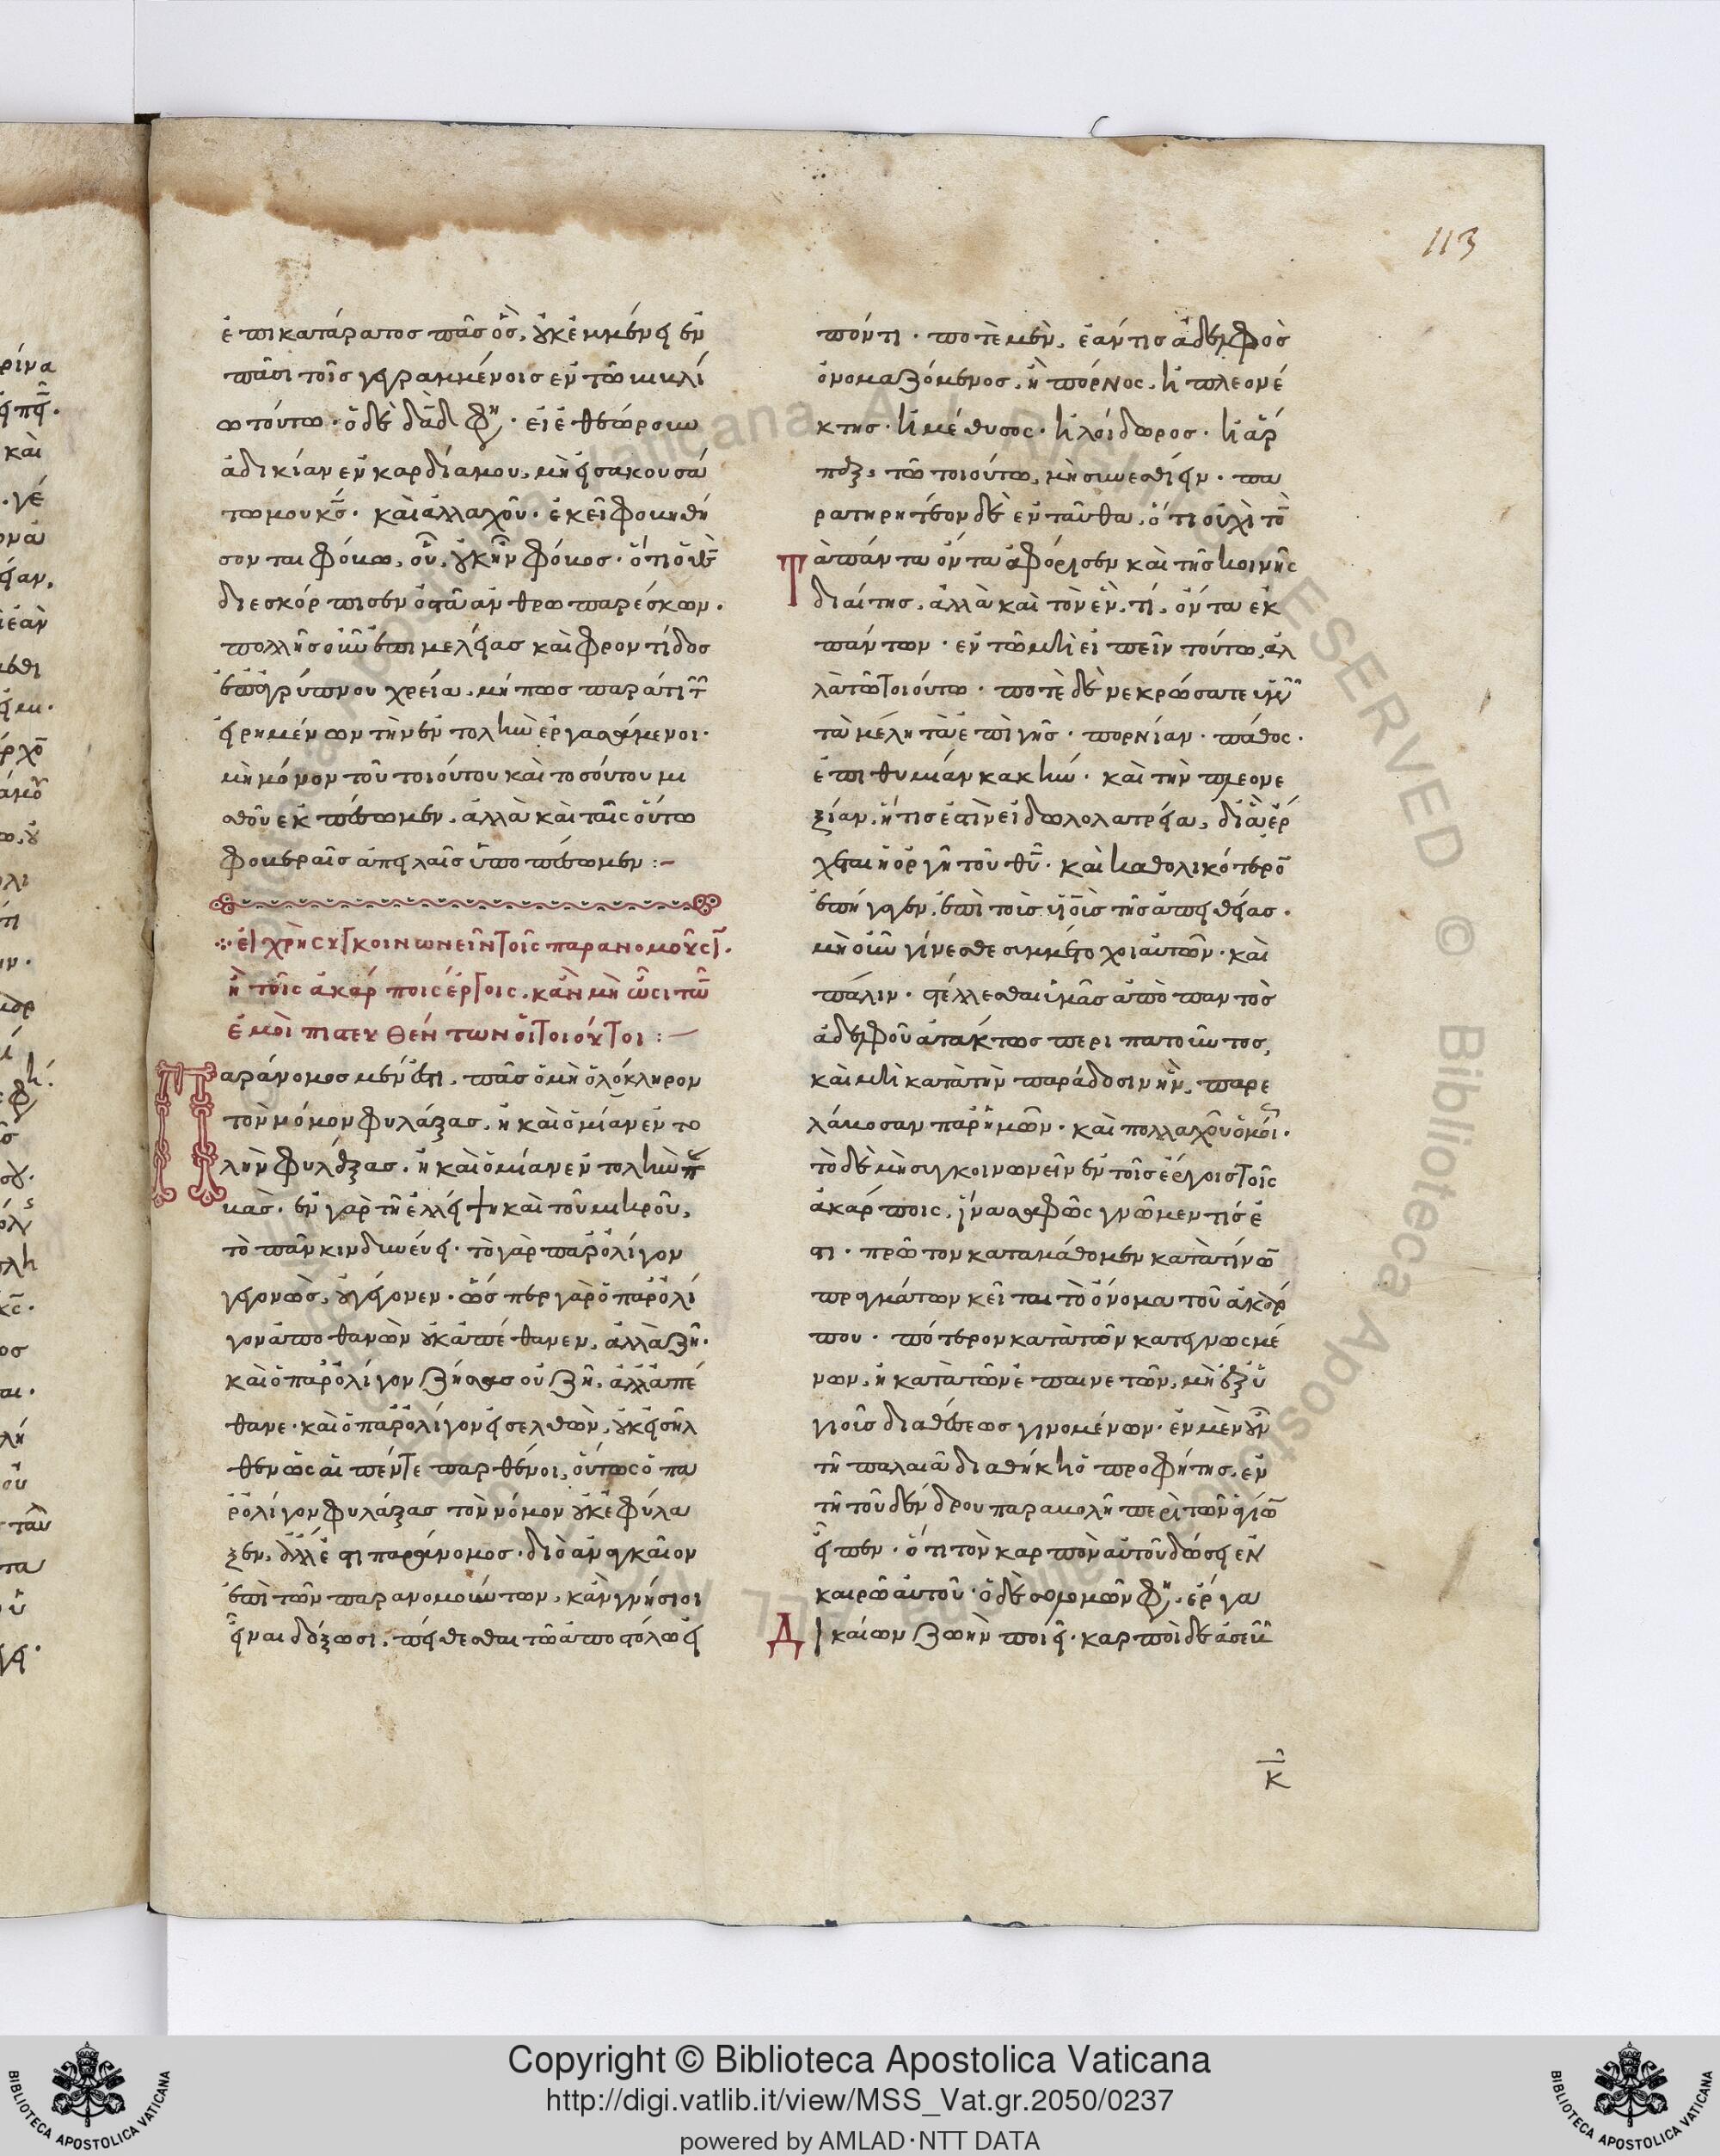 113
ἐπικατάρατος πᾶς ὃς, οὐκ ἐμμένει ἐν
πᾶσι τοῖς γεγραμμένοις ἐν τῶ βιβλί
ω τούτω· ὁ δὲ δαδ φη· εἰ ἐθεώρουν
ἀδικίαν ἐν καρδία μου, μὴ εἰσακουσά
τω μου κς· καὶ ἀλλαχοῦ· ἐκεῖ φοβηθή
σονται φόβω, οὗ, οὐκ ἦν φόβος· ὅτι ὁ θς
διεσκόρπισεν ὀστᾶ ἀνθρωπαρέσκων·
πολλῆς οὖν ἐπιμελείας καὶ φροντίδος
ἐπ ἀγρύπνου χρεία, μή πως παρά τι τ
εἰρημένων τὴν ἐντολὴν ἐργασάμενοι·
μὴ μόνον τοῦ τοιούτου καὶ τοσούτου μι
σθοῦ ἐκπέσωμεν, ἀλλὰ καὶ ταῖς οὕτω
φοβεραῖς ἀπειλαῖς ὑποπέσωμεν :–
εἰ χρὴ συγκοινωνεῖν τοῖς παρανομοῦσι·
ἢ τοῖς ἀκάρποις ἔργοις, κἂν μὴ ὦσι τῶν
ἐμοὶ πιστευθέντων οἱ τοιοῦτοι :–
Παράνομος μέν ἐστι, πᾶς ὁ μὴ ὁλόκληρον
τὸν νόμον φυλάξας, ἢ καὶ ὁ μίαν ἐντο
λὴν φυλάξας, ἢ καὶ ὁ μίαν ἐντολὴν π
βάς· ἐν γὰρ τῆ ἐλλείψη καὶ τοῦ μικροῦ,
τὸ πᾶν κινδυνεύει· τὸ γὰρ παρολίγον
γεγονὼς, οὐ γέγονεν· ὥσπερ γὰρ ὁ παρολί
γον ἀποθανὼν οὐκ ἀπέθανεν, ἀλλὰ ζῆ·
καὶ ὁ παρολίγον ζήσας οὐ ζῆ, ἀλλ ἀπέ
θανε· καὶ ὁ παρολίγον εἰσελθὼν, οὐκ εἰσῆλ
θεν ὡς αἱ πέντε παρθένοι, οὕτως ὁ πα
ρολίγον φυλάξας τὸν νόμον οὐκ ἐφύλα
ξεν, ἀλλ ἔστι παράνομος· διὸ ἀναγκαῖον
ἐπὶ τῶν παρανομούντων, κἂν γνήσιοι
εἶναι δόξωσι, πείθεσθαι τῶ ἀποστόλω εἰ
πόντι· ποτὲ μὲν, ἐάν τις ἀδελφὸς
ὀνομαζόμενος, ἢ πόρνος, ἢ πλεονέ
κτης· ἢ μέθυσος· ἢ λοίδωρος· ἢ ἅρ
παξ, τῶ τοιούτω, μὴ συνεσθίειν· πα
ρατηρητέον δὲ ἐνταῦθα, ὅτι οὐχὶ τὸν
τὰ πάντα ὄντα ἀφόρισεν καὶ τῆς κοινῆς
διαίτης, ἀλλὰ καὶ τὸν ἕν, τί, ὄντα ἐκ
πάντων· ἐν τῶ μὴ εἰπεῖν τούτω, ἀλ
λὰ τῶ τοιούτω· ποτὲ δὲ νεκρώσατε ὑμῶν
τὰ μέλη τὰ ἐπὶ γῆς· πορνίαν· πάθος·
ἐπιθυμίαν κακὴν· καὶ τὴν πλεονε
ξίαν, ἥτις ἐστὶν εἰδωλολατρεία, δι ἃ ἔρ
χεται ἡ ὀργὴ τοῦ θυ· καὶ καθολικότερον
ἐπήγαγεν, ἐπὶ τοὶς υἱοὶς τῆς ἀπειθείας·
μὴ οὖν γίνεσθε συμμέτοχοι αὐτῶν· καὶ
πάλιν· στέλλεσθαι ὑμᾶς ἀπὸ παντὸς
ἀδελφοῦ ἀτάκτως περιπατοῦντος,
καὶ μὴ κατὰ τὴν παράδοσιν ἣν, παρε
λάβοσαν παρ ἡμῶν· καὶ πολλαχοῦ ὁμοί·
τὸ δὲ μὴ συγκοινωνεῖν ἐν τοῖς ἔργοις τοῖς
ἀκάρποις, ἵνα σαφῶς γνῶμεν τίς ἐ
στι· πρῶτον καταμάθομεν κατὰ τίνων
πραγμάτων κεῖται τὸ ὄνομα τοῦ ἀκάρ
που· πότερον κατὰ τῶν κατεγνωσμέ
νων, ἢ κατὰ τῶν ἐπαινετῶν, μὴ ἐξ ὑ
γιοῦς διαθέσεως γινομένων· ἐν μὲν οὖν
τῆ παλαιᾶ διαθήκη ὁ προφήτης, ἐν
τῆ τοῦ δένδρου παραβολῆ περὶ τῶν ἁγίων
εἶπεν· ὅτι τὸν καρπὸν αὐτοῦ δώσει ἐν
καιρῶ αὐτοῦ· ὁ δὲ σολομῶν φη· ἔργα
Δικαίων ζωὴν ποιεῖ· καρποὶ δὲ ἀσεβῶν
κ
Copyright © Biblioteca Apostolica Vaticana
http://digi.vatlib.it/view/MSS_Vat.gr.2050/0237
powered by AMLAD·NTT DATA
BIBLIOTECA APOSTOLICA VATICANA
BIBLIOTECA APOSTOLICA VATICANA